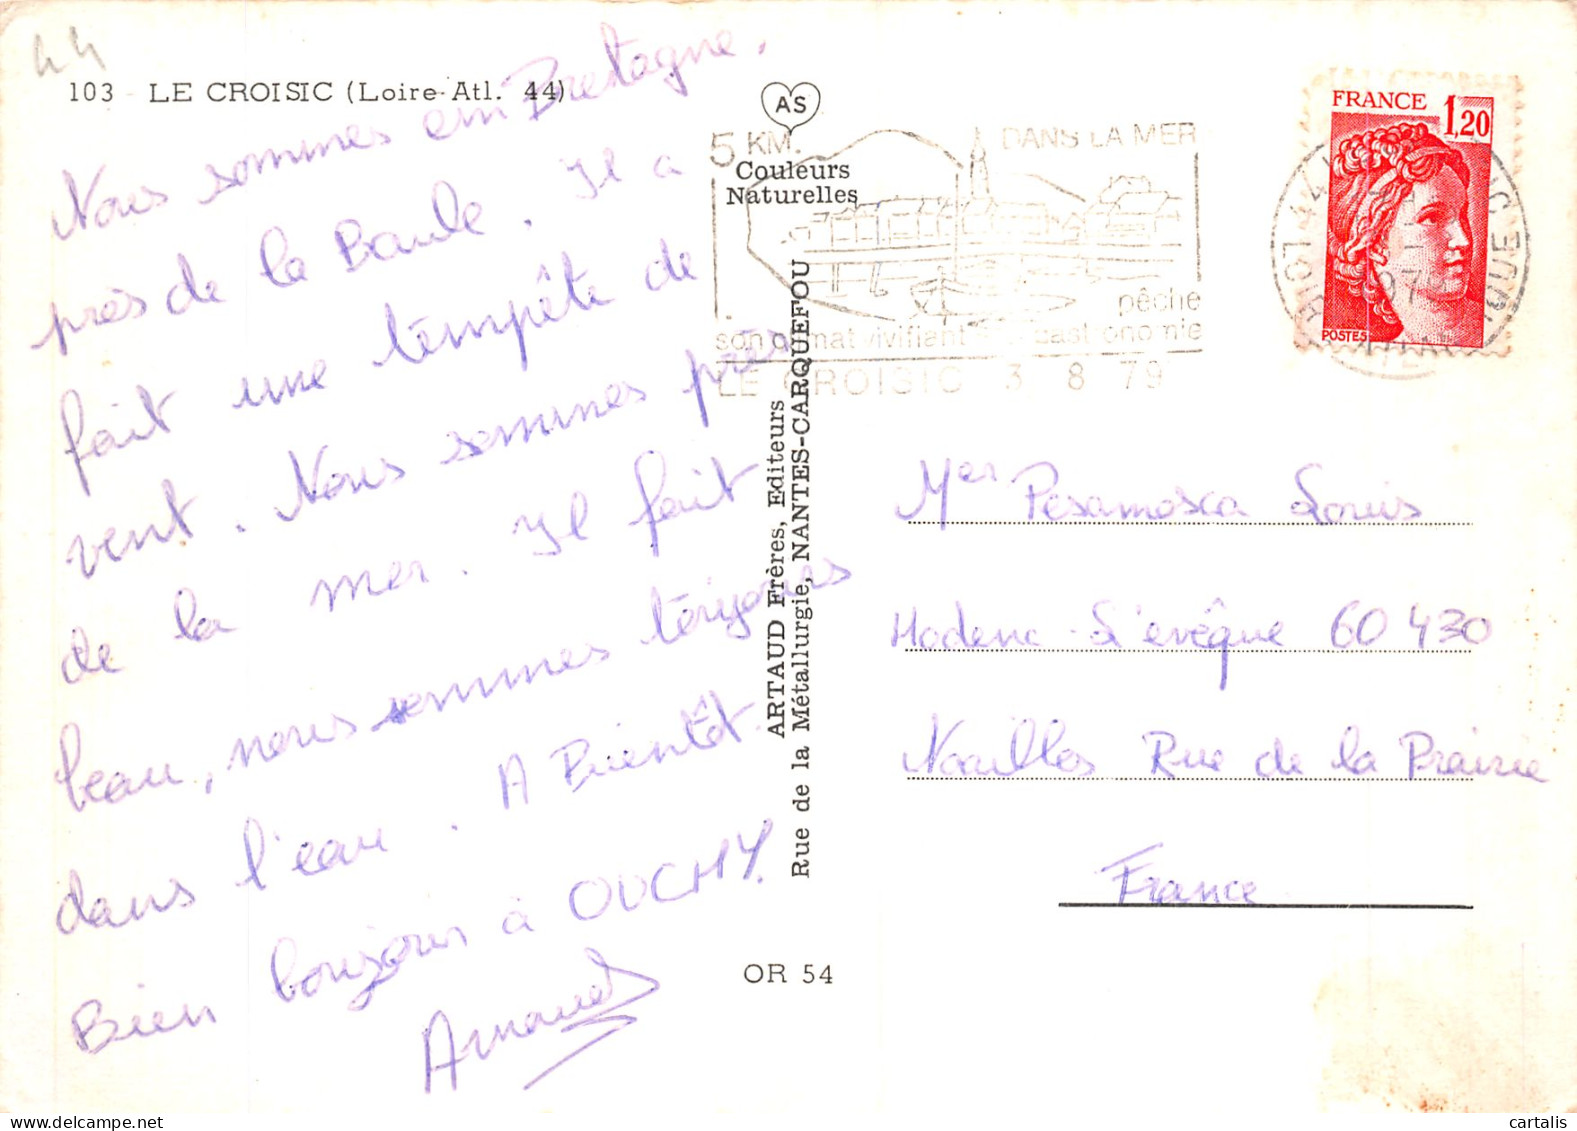 44
103 - LE CROISIC (Loire-Atl. 44)
Nous sommes en Bretagne,
près de la Baule. Il a
fait une tempête de
vent. Nous sommes près
de la mer. Il fait
beau, nous sommes toujours
dans l'eau. A Bientôt.
Bien bonjour à OUCHY.
Arnaud
AS
Couleurs
Naturelles
ARTAUD Frères, Editeurs
Rue de la Métallurgie, NANTES-CARQUEFOU
OR 54
5 KM. DANS LA MER
pêche
son climat vivifiant gastronomie
LE CROISIC 3 8 79
FRANCE 1,20
POSTES
44 LE CROISIC
LOIRE ATLANTIQUE
Mer Pesamosca Louis
Hodenc-L'evêque 60 430
Noailles Rue de la Prairie
France
cartalis